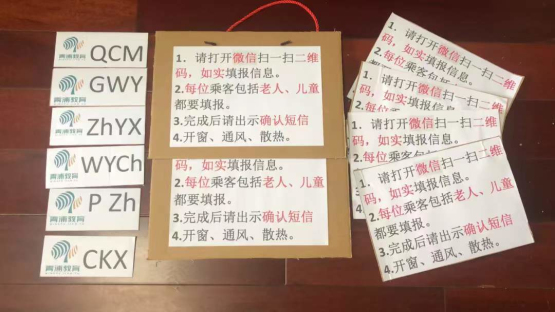 青浦教育
QCM
青浦教育
GWY
青浦教育
ZhYX
青浦教育
WYCh
青浦教育
P Zh
青浦教育
CKX
1.请打开微信扫一扫二维
码，如实填报信息。
2.每位乘客包括老人、儿童
都要填报。
3.完成后请出示确认短信
4.开窗、通风、散热。
码，如实填报信息。
2.每位乘客包括老人、儿童
都要填报。
3.完成后请出示确认短信
4.开窗、通风、散热。
1.请打开微信扫一扫二维
码，如实填报信息。
2.每位乘客包括老人、儿
1.请打开微信扫一扫二维
码，如实填报信息。
1.请打开微信扫一扫二维
码，如实填报信息。
1.请打开微信扫一扫二维
码，如实填报信息。
2.每位乘客包括老人、儿童
都要填报。
3.完成后请出示确认短信
4.开窗、通风、散热。